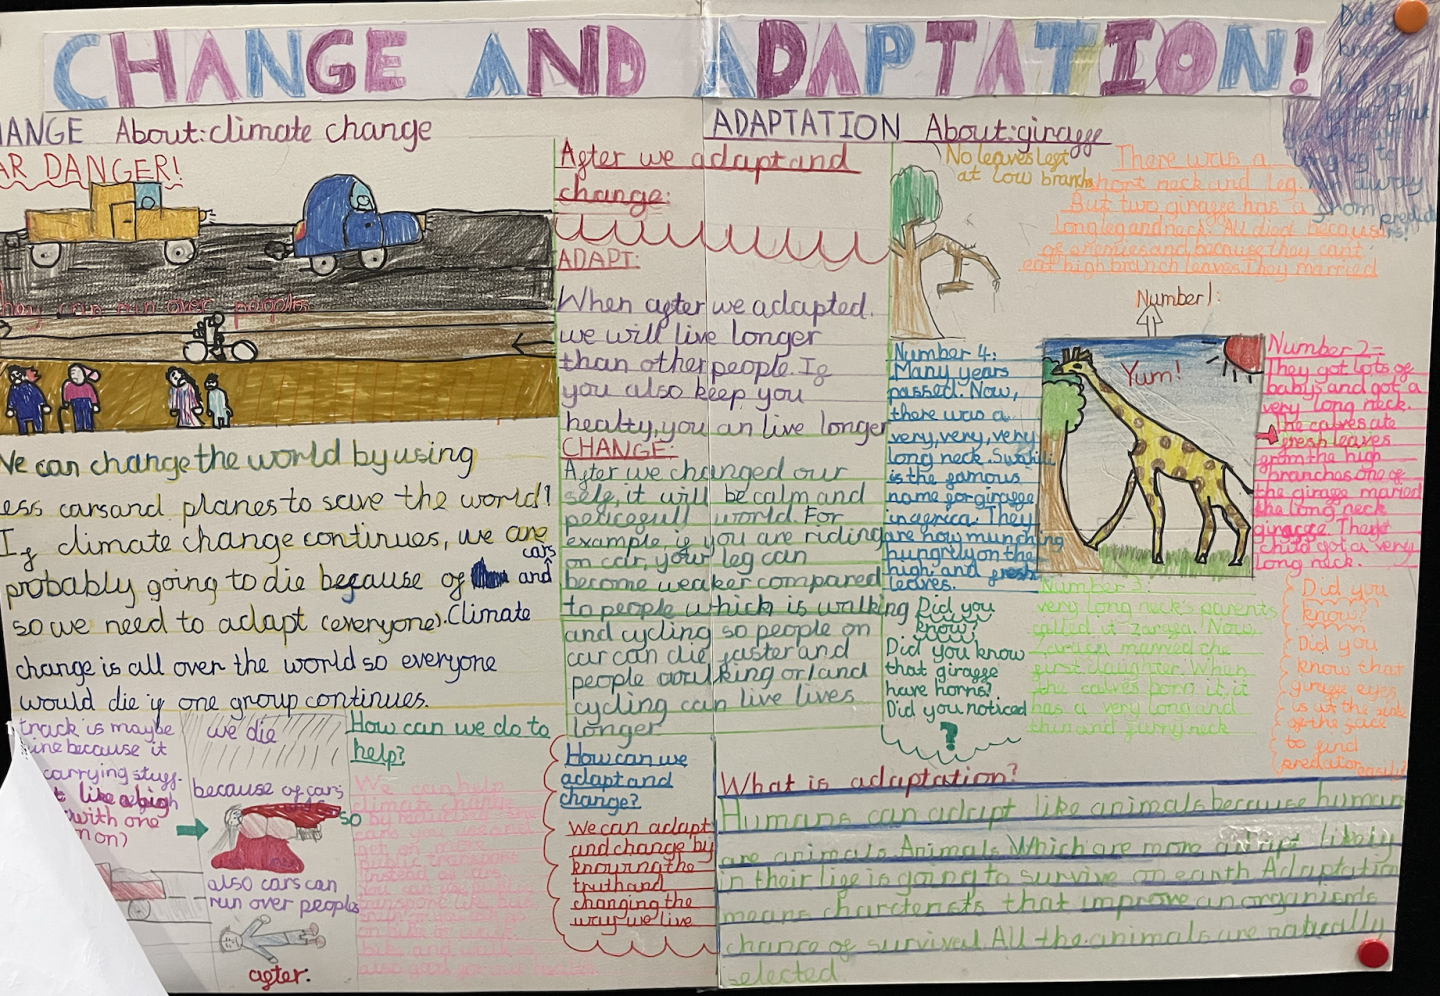 CHANGE AND ADAPTATION!
ANGE About: climate change
AR DANGER!
they can run over peoples
We can change the world by using
ess cars and planes to save the world!
If climate change continues, we are
probably going to die because of cars and
so we need to adapt (everyone). Climate
change is all over the world so everyone
would die if one group continues.
track is maybe
ine because it
carrying stuff.
like a high
with one
on)
we die
because of cars
so
also cars can
run over peoples
after:
How can we do to
help?
We can help
climate change
by reducing the
cars you use and
get on more
Public transport
instead of cars.
You can use public
transport like bus
bike and walk
also good for our health
After we adapt and
change:
ADAPT:
When after we adapted.
we will live longer
than other people. If
you also keep you
healty, you an live longer
CHANGE:
After we changed our
self, it will be calm and
peticefull world. For
example if you are riding
on car, your leg can
become weaker compared
to people which is walking
and cycling so people on
car can die faster and
people walking or/and
cycling can live lives
longer
How can we
adapt and
change?
We can adapt
and change by
knowing the
truth and
changing the
way we live
ADAPTATION About: giraffe
No leaves left
at low branchs
There was a
short neck and leg.
But two giraffe has a
long leg and neck. All died because
of enemies and because they can't
eat high branch leaves. They married
Number 1:
But
long leg to
run away
from predat
rs!
Yum!
Number 2=
They got lots of
babys and got a
very long neck.
The calves ate
fresh leaves
from the high
branches one of
the giraffe maried
the long neck
giraffe. Their
child got a very
long neck.
Number 3:
very long neck's parents
called it Zarafa. Now,
Zarafa married the
first daughter. When
the calves born it, it
has a very long and
thin and furry neck
Number 4:
Many years
passed. Now,
there was a
very, very, very
long neck. Swahili
is the famous
name for giraffe
in africa. They
are now munching
hungrily on the
high and fresh
leaves.
Did you
know?
Did you know
that giraffe
have horns?
Did you noticed
?
Did you
know?
Did you
know that
giraffe eyes
is at the side
of the face
to find
predator easily?
What is adaptation?
Humans can adapt like animals because human
are animals. Animals Which are more adapt likely
in their life is going to survive on earth Adaptation
means charctersts that improve an organisms
chance of survival. All the animals are naturally
selected